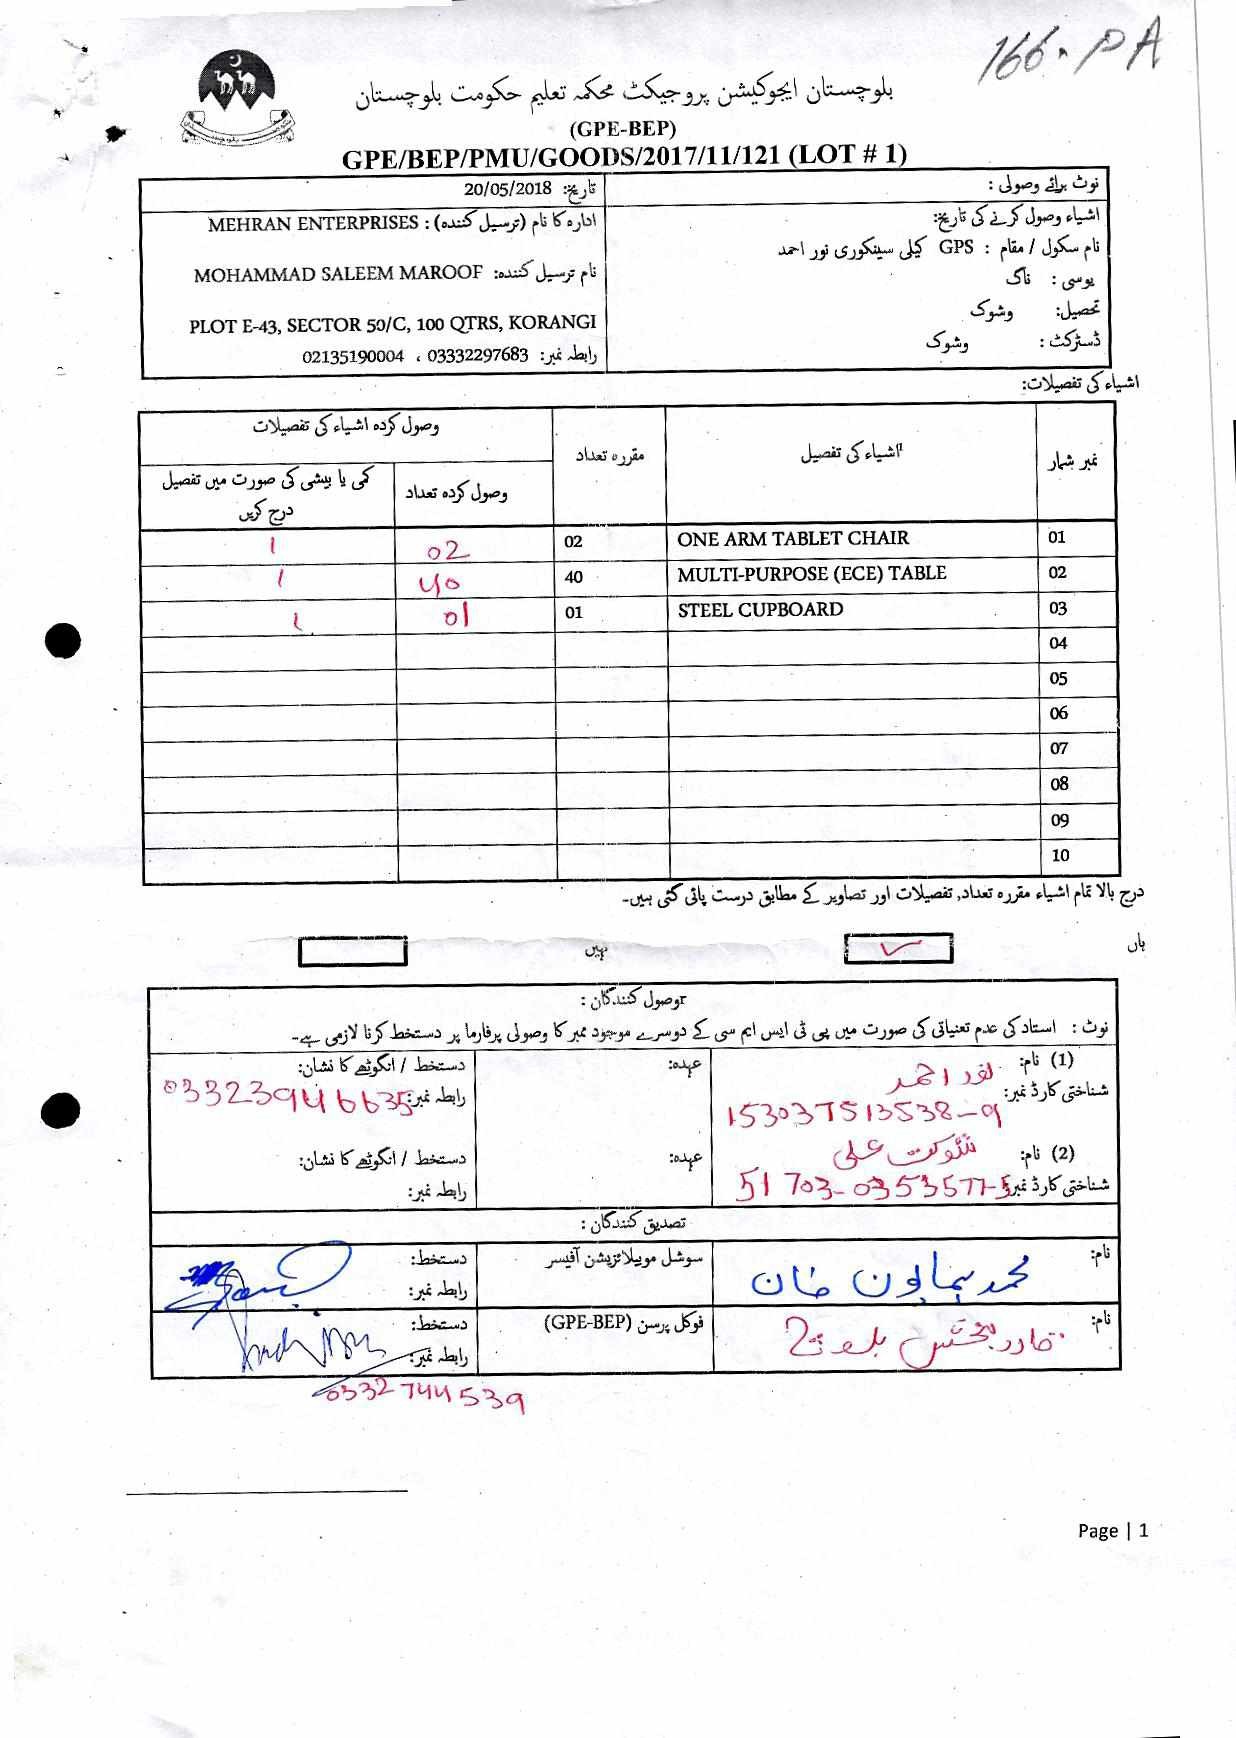 166. PA
بلوچستان ایجوکیشن پروجیکٹ محکمہ تعلیم حکومت بلوچستان
(GPE-BEP)
GPE/BEP/PMU/GOODS/2017/11/121 (LOT # 1)
نوٹ برائے وصولی :
اشیاء وصول کرنے کی تاریخ:
نام سکول / مقام : GPS کیلی سینکوری نور احمد
یوسی : ناگ
تحصیل: وشوک
ڈسٹرکٹ : وشوک
تاریخ: 20/05/2018
ادارہ کا نام (ترسیل کنندہ) : MEHRAN ENTERPRISES
نام ترسیل کنندہ: MOHAMMAD SALEEM MAROOF
PLOT E-43, SECTOR 50/C, 100 QTRS, KORANGI
رابطہ نمبر: 03332297683 ، 02135190004
اشیاء کی تفصیلات:
نمبر شمار اشیاء کی تفصیل مقررہ تعداد وصول کردہ اشیاء کی تفصیلات
وصول کردہ تعداد کمی یا بیشی کی صورت میں تفصیل درج کریں
01 ONE ARM TABLET CHAIR 02 02 1
02 MULTI-PURPOSE (ECE) TABLE 40 40 1
03 STEEL CUPBOARD 01 01 1
04
05
06
07
08
09
10
درج بالا تمام اشیاء مقررہ تعداد, تفصیلات اور تصاویر کے مطابق درست پائی گئی ہیں۔
ہاں ✓ نہیں
وصول کنندگان :
نوٹ : استاد کی عدم تعنیاتی کی صورت میں پی ٹی ایس ایم سی کے دوسرے موجود ممبر کا وصولی پرفارما پر دستخط کرنا لازمی ہے۔
(1) نام: نور احمد عہدہ: دستخط / انگوٹھے کا نشان:
شناختی کارڈ نمبر: 153037513538-9 رابطہ نمبر: 03323946635
(2) نام: شوکت علی عہدہ: دستخط / انگوٹھے کا نشان:
شناختی کارڈ نمبر: 51703-0353577-5 رابطہ نمبر:
تصدیق کنندگان :
نام: محمد ہمایون خان سوشل موبیلائزیشن آفیسر دستخط:
رابطہ نمبر:
نام: قادر بخش بلوچ فوکل پرسن (GPE-BEP) دستخط:
رابطہ نمبر:
0332744539
Page | 1